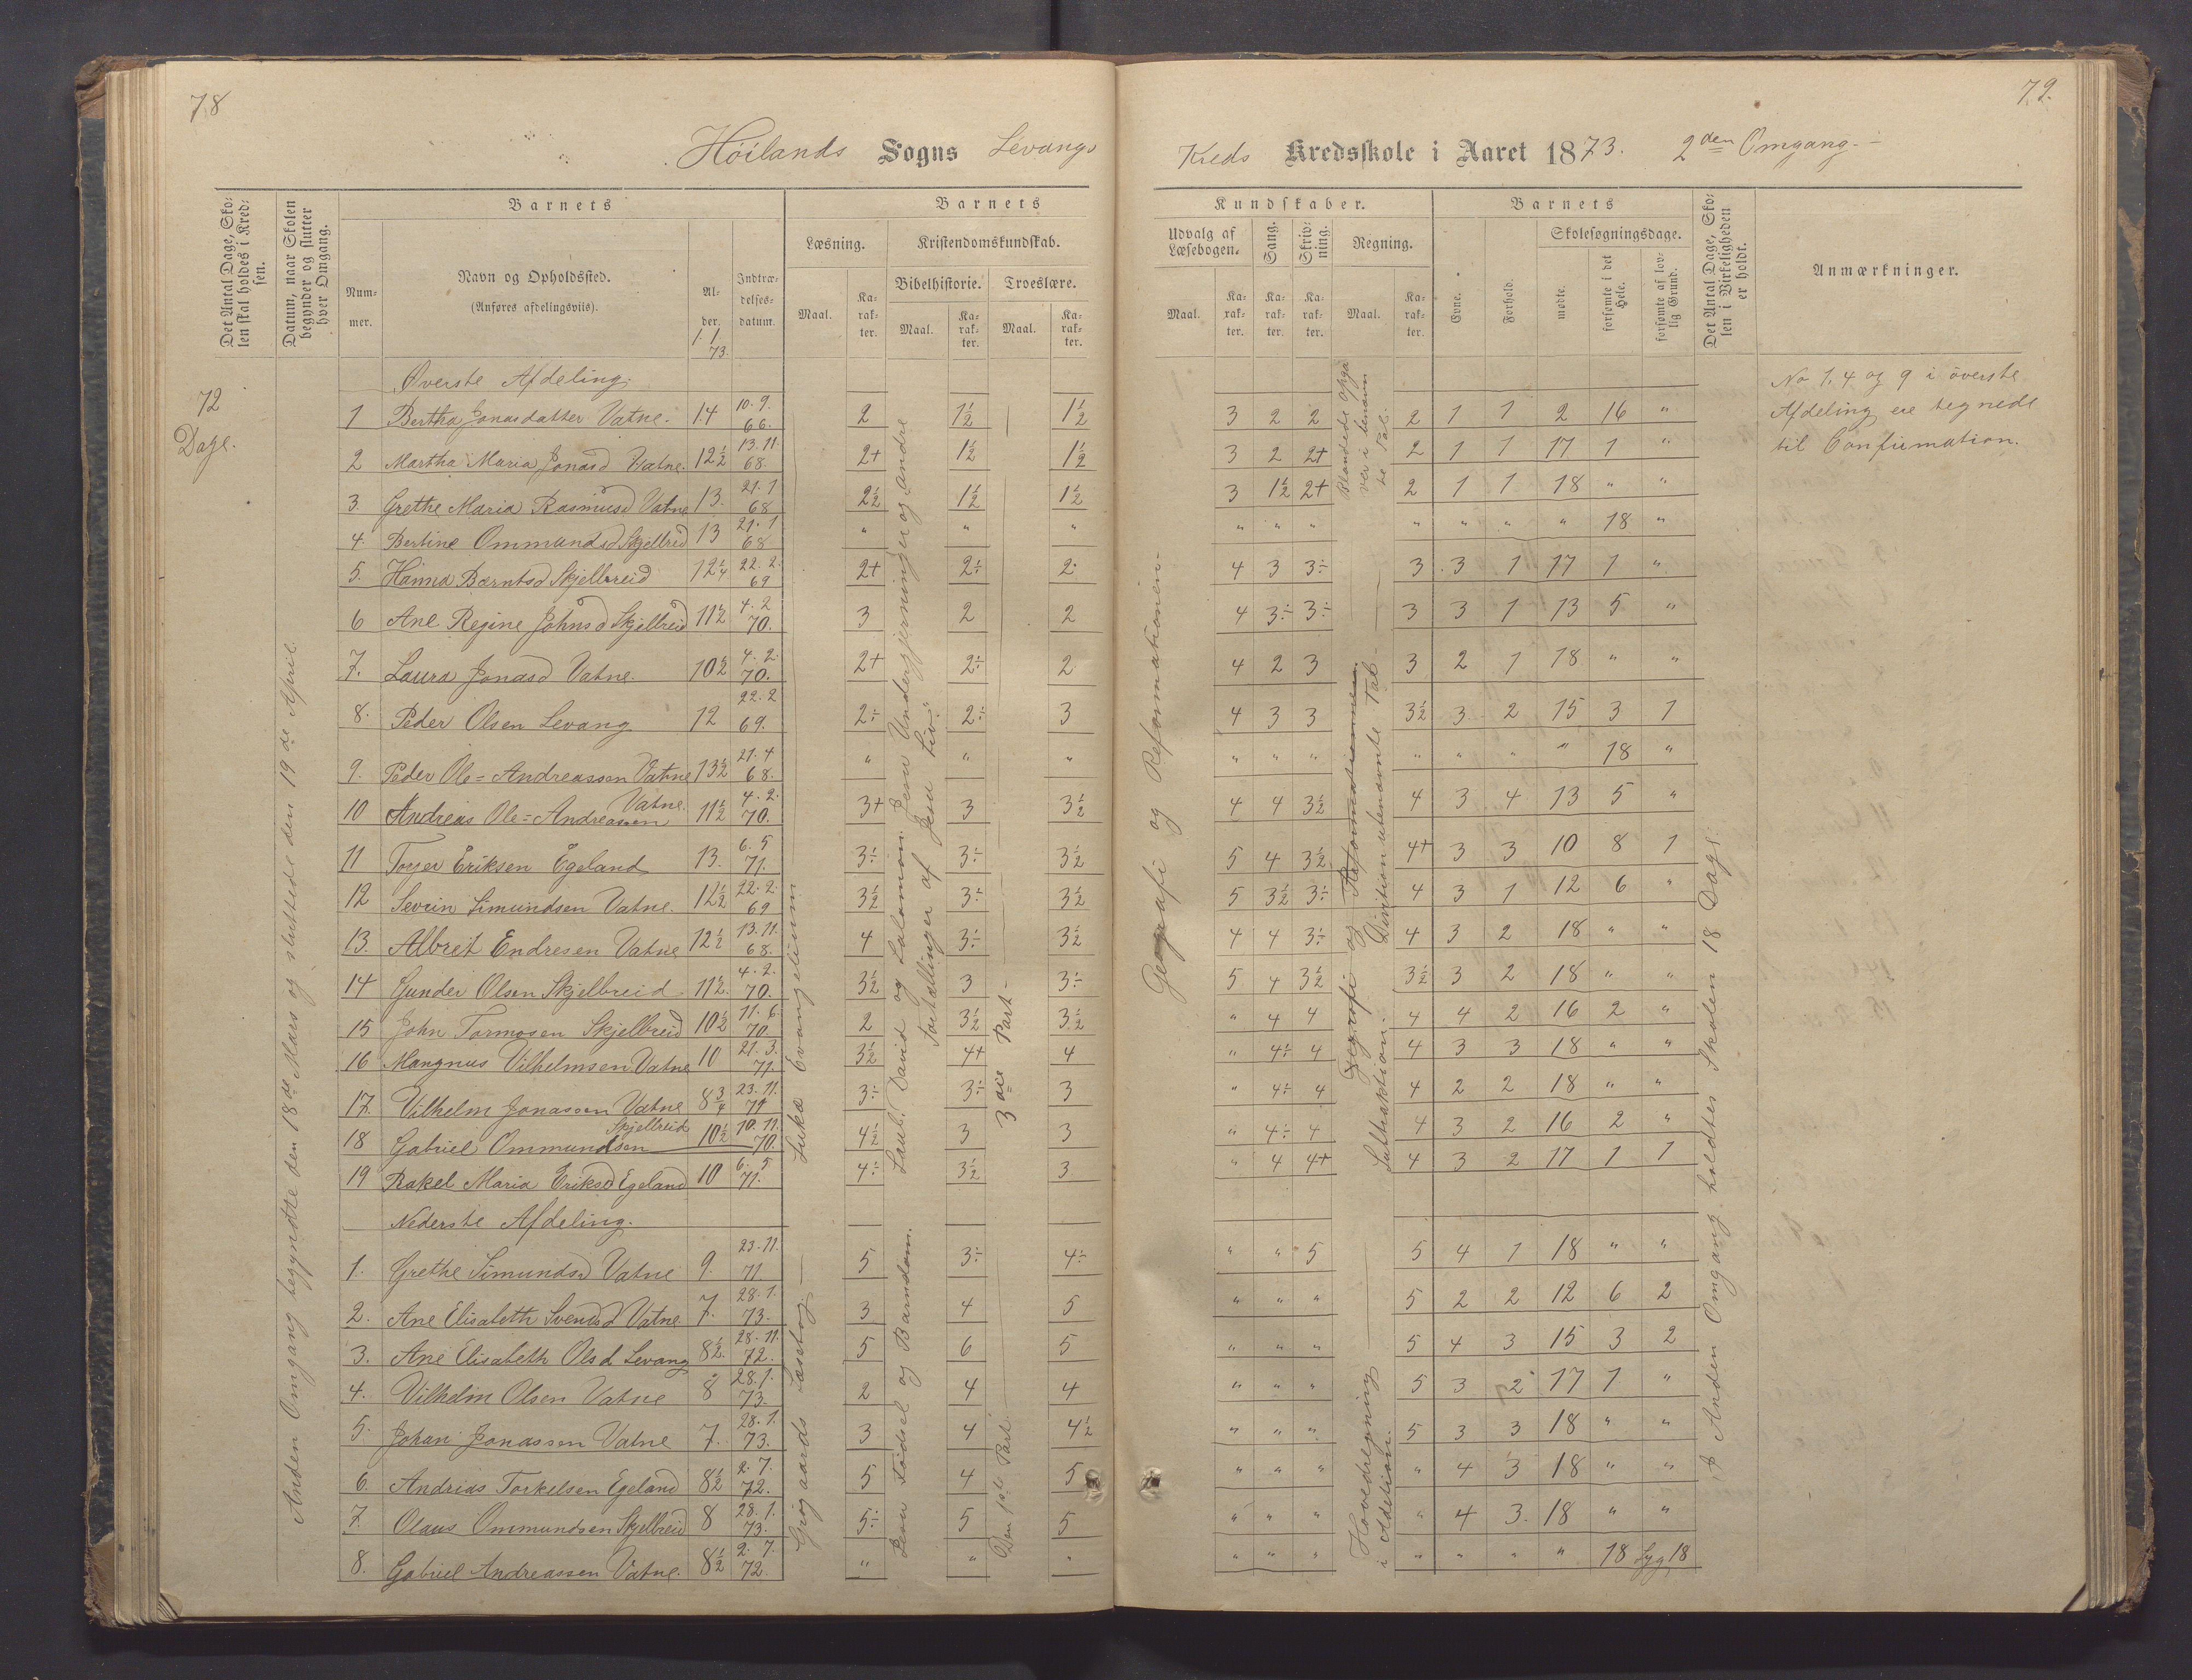 78
Höilands Sogns Levangs
Det Antal Dage, Sko-
len skal holdes i Kred-
sen.
Datum, naar Skolen
begynder og slutter
hver Omgang.
Barnets
Barnets
Num-
mer.
Navn og Opholdssted.
(Anføres afdelingsviis).
Al-
der.
1/1 73.
Indtræ-
delses-
datum.
Læsning.
Kristendomskundskab.
Bibelhistorie.
Troeslære.
Maal.
Ka-
rak-
ter.
Maal.
Ka-
rak-
ter.
Maal.
Ka-
rak-
ter.
72
Dage.
Anden Omgang begyndte den 18de Mars og sluttede den 19de April
Øverste Afdeling.
1 Bertha Jonasdatter Vatne. 14 10.9. 66. 2 1½ 1½
2 Martha Maria Jonasd Vatne. 12½ 13.11. 68. 2+ 1½ 1½
3. Grethe Maria Rasmusd Vatne 13. 21.1 68 2½ 1½ 1½
4. Bertine Ommundsd Skjelbreid 13 21.1 68 " " "
5. Hanna Berntsd Skjelbreid 12¼ 22.2. 69 2+ 2÷ 2
6 Ane Regine Johnsd Skjelbreid 11½ 4.2 70. 3 2 2
7. Laura Jonasd Vatne. 10½ 4.2. 70. 2+ 2÷ 2
8. Peder Olsen Levang 12 22.2 69. 2÷ 2÷ 3
9. Peder Ole=Andreassen Vatne 13½ 21.4 68. " " "
10 Andreas Ole=Andreassen Vatne. 11½ 4.2. 70. 3+ 3 3½
11 Torger Eriksen Egeland 13. 6.5 71. 3÷ 3÷ 3½
12 Sevrin Simundsen Vatne. 12½ 22.2. 69 3½ 3÷ 3½
13. Albreit Endresen Vatne 12½ 13.11. 68. 4 3÷ 3½
14 Gunder Olsen Skjelbreid 11½. 4.2. 70. 3½ 3 3÷
15 John Tormosen Skjelbreid 10½ 11.6. 70. 2 3½ 3½
16 Mangnus Vilhelmsen Vatne 10 21.3. 71. 3½ 4+ 4
17. Vilhelm Jonassen Vatne 8¾ 23.11. 71 3÷ 3÷ 3
18 Gabriel Ommundsen Skjelbreid 10½ 10.11. 70. 4½ 3 3
19 Rakel Maria Eriksd Egeland 10 6.5 71. 4÷ 3½ 3
Nederste Afdeling.
1. Grethe Simundsd Vatne 9. 23.11. 71. 5 3÷ 4÷
2. Ane Elisabeth Svendsd Vatne 7. 28.1. 73. 3 4 5
3. Ane Elisabeth Olsd Levang 8½. 28.11. 72. 5 6 5
4. Vilhelm Olsen Vatne 8 28.1. 73. 2 4 4
5. Johan Jonassen Vatne 7. 28.1. 73. 3 4 4½
6. Andrias Torkelsen Egeland 8½ 2.7. 72. 5 4 5
7. Olaus Ommundsen Skjelbreid 8 28.1. 73. 5÷ 5 5
8. Gabriel Andreassen Vatne. 8½ 2.7. 72. " " "
Luka Evangelium
Grøgaards Læsebog
Saul. David og Salomon. Jesu Undergjerninger og andre
Fortællinger af Jesu Liv.
Jesu Fødsel og Barndom.
3die Part
Den 1ste Part
79.
Kreds Kredsskole i Aaret 1873. 2den Omgang.
Kundskaber.
Barnets
Udvalg af
Læsebogen.
Sang.
Skriv-
ning.
Regning.
Maal.
Ka-
rak-
ter.
Ka-
rak-
ter.
Ka-
rak-
ter.
Maal.
Ka-
rak-
ter.
Evne.
Forhold.
Skolesøgningsdage.
mødte.
forsømte i det
Hele.
forsømte af lov-
lig Grund.
Det Antal Dage, Sko-
len i Virkeligheden
er holdt.
Anmærkninger.
No 1, 4 og 9 i överste
Afdeling ere tegnede
til Confirmation.
3 2 2 2 1 1 2 16 "
3 2 2+ 2 1 1 17 1 "
3 1½ 2+ 2 1 1 18 " "
" " " " " " " 18 "
4 3 3÷ 3 3 1 17 1 "
4 3÷ 3÷ 3 3 1 13 5 "
4 2 3 3 2 1 18 " "
4 3 3 3½ 3 2 15 3 1
" " " " " " " 18 "
4 4 3½ 4 3 4 13 5 "
5 4 3½ 4+ 3 3 10 8 1
5 3½ 3÷ 4 3 1 12 6 "
4 4 3÷ 4 3 2 18 " "
5 4 3½ 3½ 3 2 18 " "
" 4 4 4 4 2 16 2 "
" 4÷ 4 4 3 3 18 " "
" 4÷ 4 4 2 2 18 " "
" 4÷ 4 4 3 2 16 2 "
" 4 4+ 4 3 2 17 1 1
" " 5 5 4 1 18 " "
" " " 5 2 2 12 6 2
" " " 5 4 3 15 3 2
" " " 5 3 2 17 1 "
" " " 5 3 3 18 " "
" " " " 4 3 18 " "
" " " " 4 3. 18 " "
" " " " " " " 18 Syg 18
Geografi og Reformationen.
Blandede Opga
ver i benævn
te Tal.
Geografi og Reformationen
Division ubenævnte Tal
Subtraktion.
Hovedregning
i Addition.
I Anden Omgang holdtes Skolen 18 Dage.